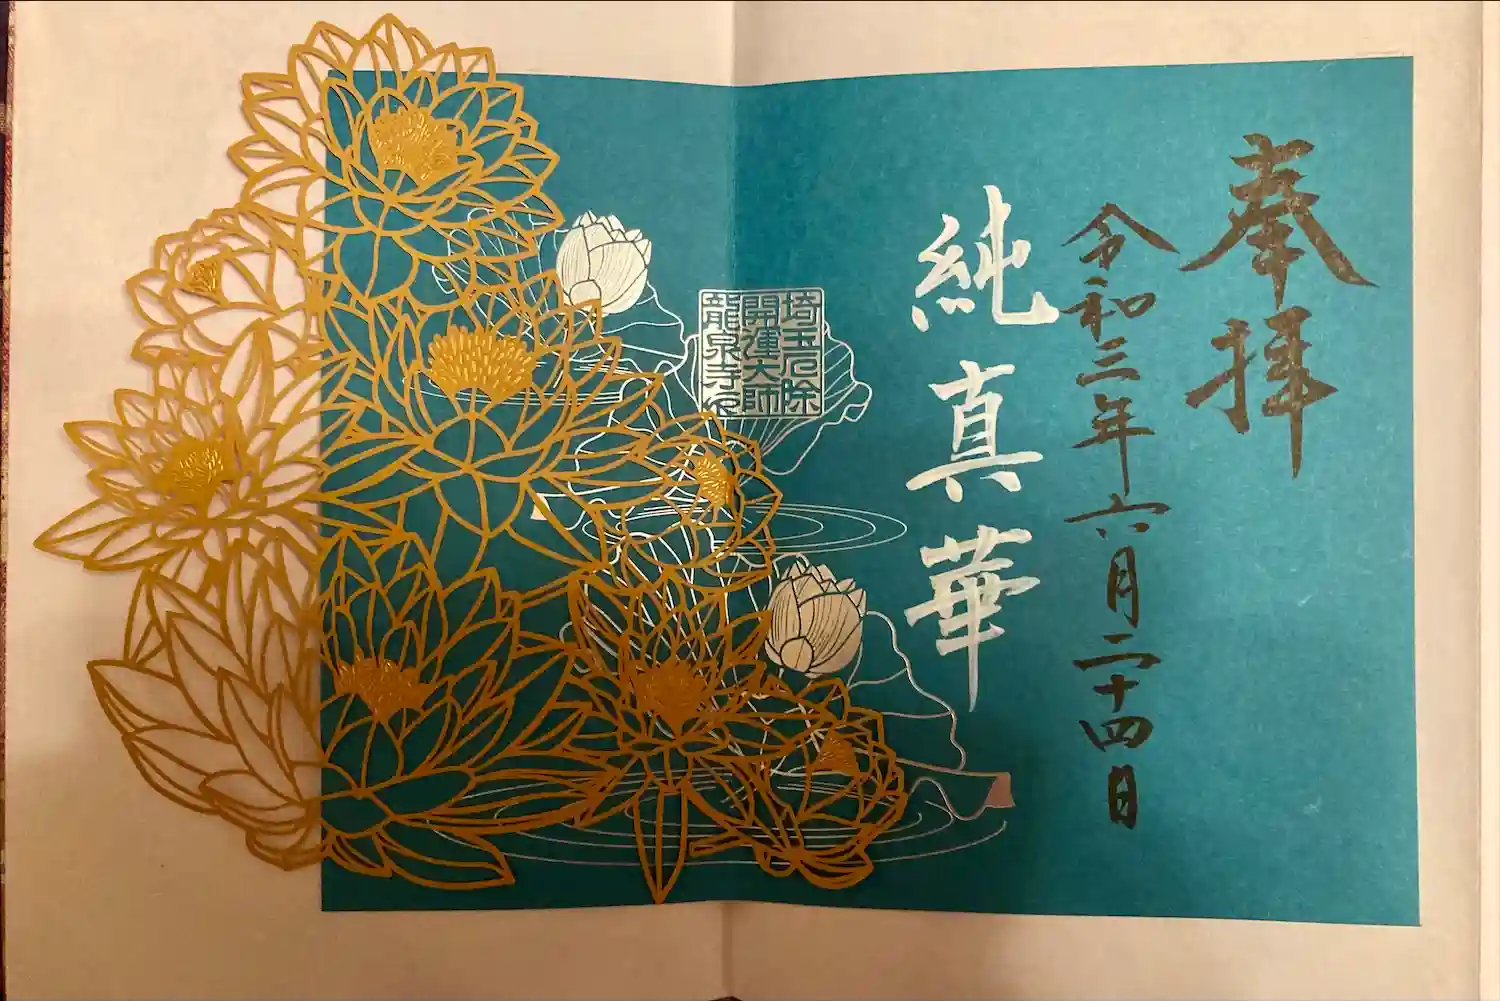 奉拝
令和三年六月二十四日
純真華
埼玉厄除
開運大師
龍泉寺